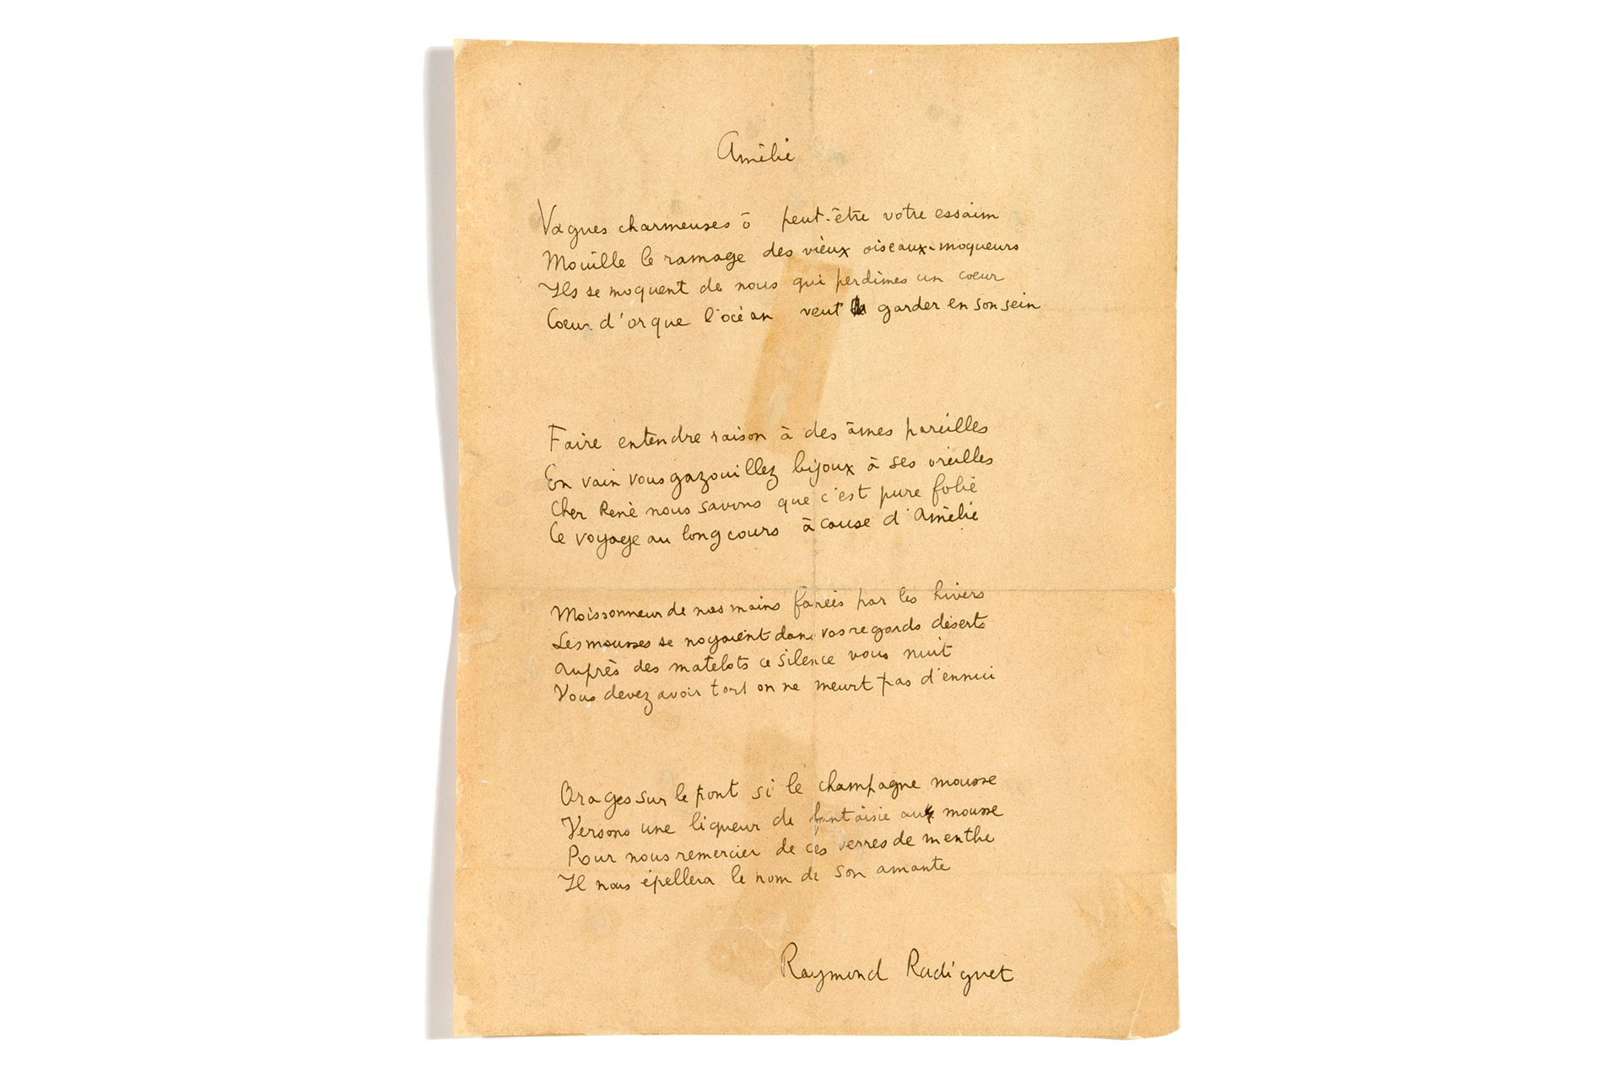 Amélie
Vagues charmeuses ô peut-être votre essaim
Mouille le ramage des vieux oiseaux-moqueurs
Ils se moquent de nous qui perdîmes un coeur
Coeur d'or que l'océan veut garder en son sein
Faire entendre raison à des âmes pareilles
En vain vous gazouillez bijoux à ses oreilles
Cher René nous savons que c'est pure folie
Ce voyage au long cours à cause d'Amélie
Moissonneur de nos mains fanées par les hivers
Les mousses se noyaient dans vos regards déserts
Auprès des matelots ce silence vous nuit
Vous devez avoir tort on ne meurt pas d'ennui
Orages sur le pont si le champagne mousse
Versons une liqueur de fantaisie au mousse
Pour nous remercier de ces verres de menthe
Il nous épellera le nom de son amante
Raymond Radiguet